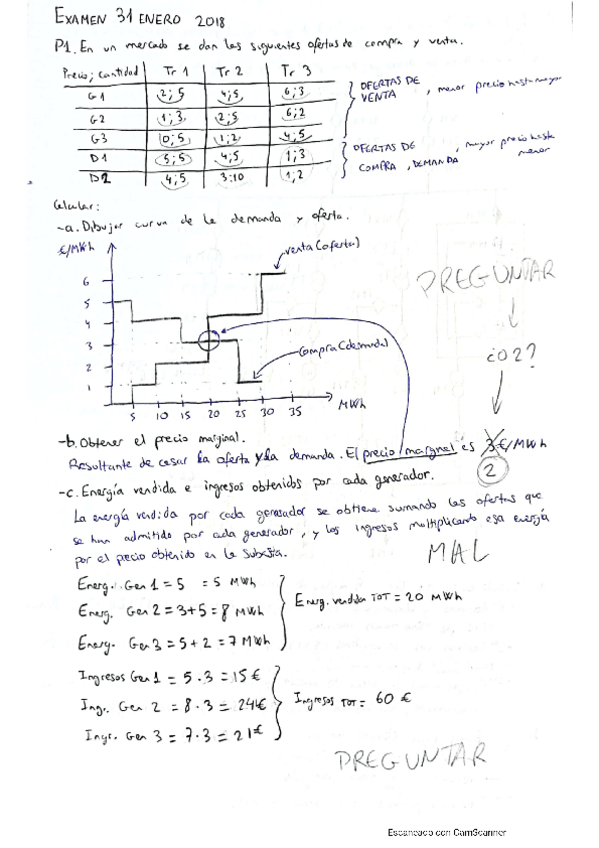 EXAMEN 31 ENERO 2018
P1. En un mercado se dan las siguientes ofertas de compra y venta.
Precio; cantidad Tr 1 Tr 2 Tr 3
G1 2;5 4;5 6;3
G2 1;3 2;5 6;2
G3 0;5 1;2 4;5
D1 5;5 4;5 1;3
D2 4;5 3:10 1;2
OFERTAS DE VENTA, menor precio hasta mayor
OFERTAS DE COMPRA, DEMANDA, mayor precio hasta menor
Calcular:
-a. Dibujar curva de la demanda y oferta.
€/MWh
venta (oferta)
6
5
4
3
2
1
compra (demanda)
5 10 15 20 25 30 35 MWh
PREGUNTAR
¿O 2?
-b. Obtener el precio marginal.
Resultante de casar la oferta y la demanda. El precio marginal es 3 €/MWh
2
-c. Energía vendida e ingresos obtenidos por cada generador.
La energía vendida por cada generador se obtiene sumando las ofertas que
se han admitido por cada generador, y los ingresos multiplicando esa energía
por el precio obtenido en la subasta.
MAL
Energ. Gen 1 = 5 = 5 MWh
Energ. Gen 2 = 3+5 = 8 MWh
Energ. Gen 3 = 5+2 = 7 MWh
Energ. vendida TOT = 20 MWh
Ingresos Gen 1 = 5 · 3 = 15 €
Ing. Gen 2 = 8 · 3 = 24 €
Ingr. Gen 3 = 7 · 3 = 21 €
Ingresos TOT = 60 €
PREGUNTAR
Escaneado con CamScanner